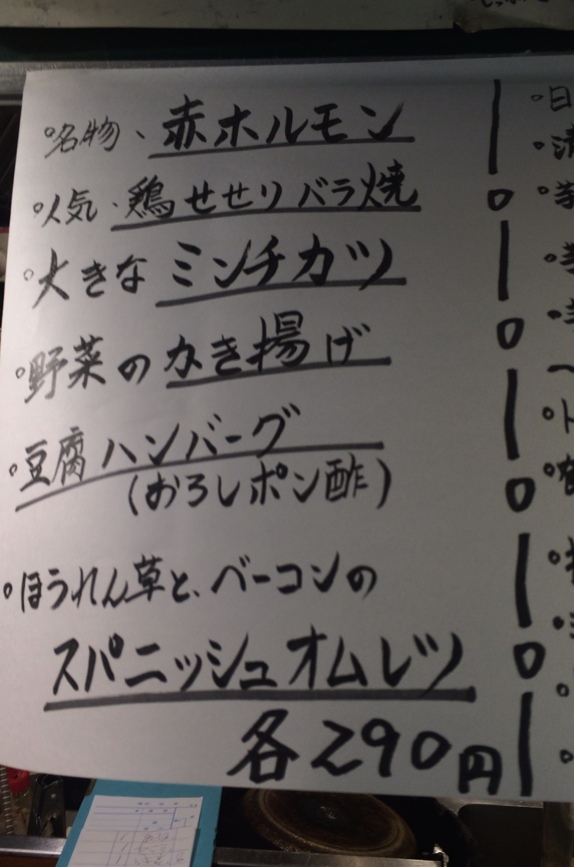 名物、赤ホルモン
人気、鶏せせりバラ焼
大きなミンチカツ
野菜のかき揚げ
豆腐ハンバーグ
(おろしポン酢)
ほうれん草と、ベーコンの
スパニッシュオムレツ
各290円